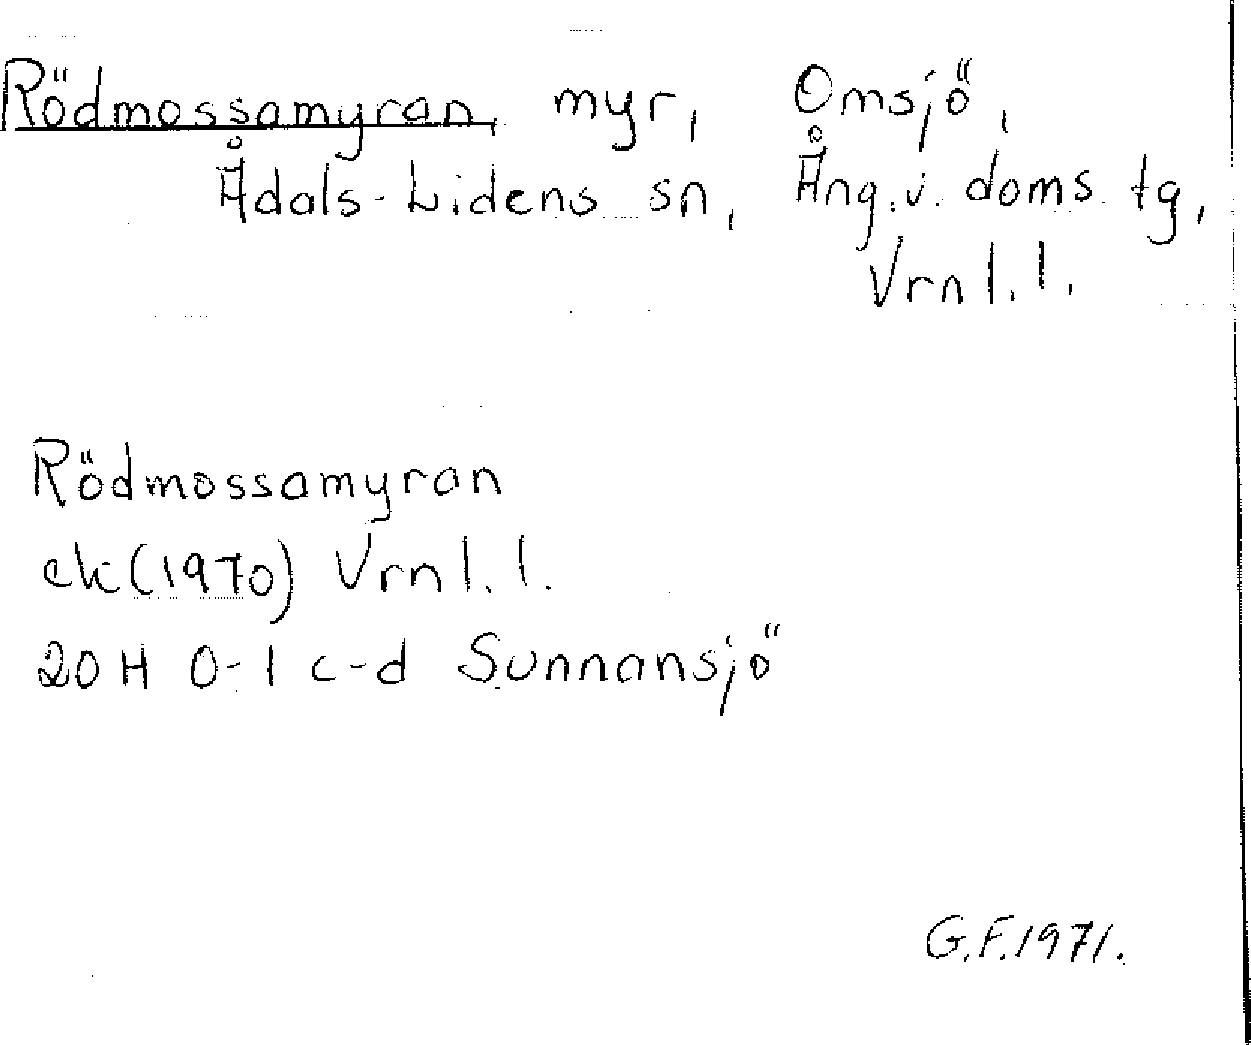 Rödmossamyran, myr, Omsjö,
Ådals-Lidens sn, Ång.v. doms. tg,
Vrnl. l.
Rödmossamyran
ek (1970) Vrnl. l.
20 H 0-1 c-d Sunnansjö
G.F. 1971.